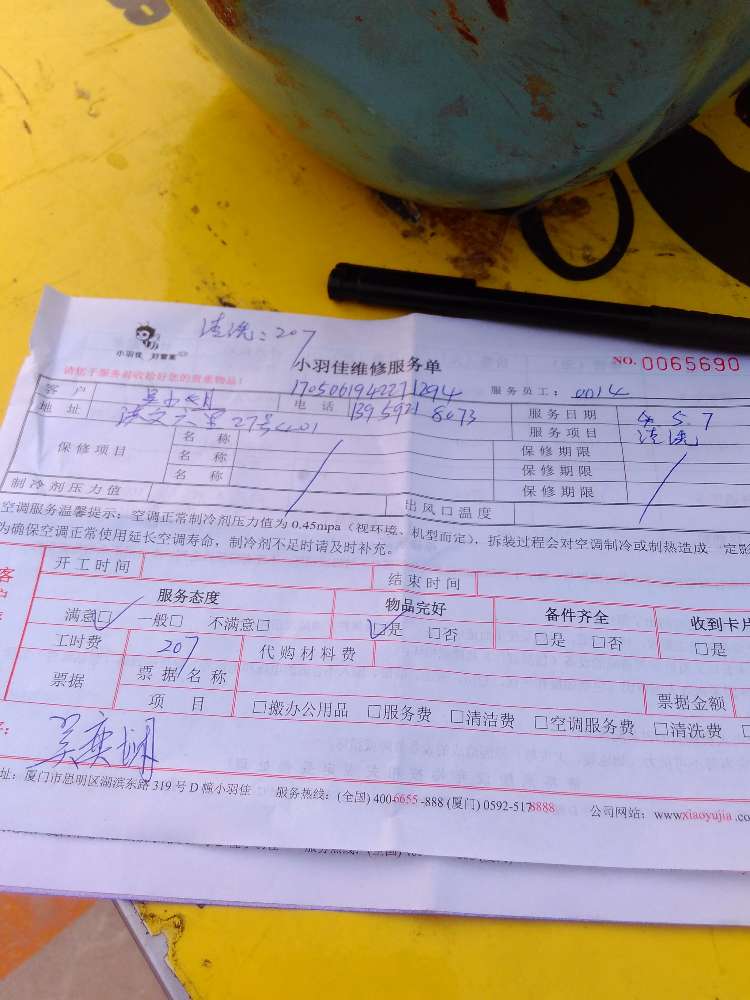 清洗：207
小羽佳 好管家
小羽佳维修服务单
NO. 0065690
请您于服务前收拾好您的贵重物品！
客户
电话 1705061942271294
服务员工： 0014
地址 洪文六里27号401
13959218073
服务日期 4.5.7
服务项目 清洗
保修项目
名称
保修期限
名称
保修期限
名称
保修期限
制冷剂压力值
出风口温度
空调服务温馨提示：空调正常制冷剂压力值为0.45mpa（视环境、机型而定），拆装过程会对空调制冷或制热造成一定影
为确保空调正常使用延长空调寿命，制冷剂不足时请及时补充。
客
户
开工时间
结束时间
服务态度
物品完好
备件齐全
收到卡片
满意□ 一般□ 不满意□
□是 □否
□是 □否
□是
工时费 207
代购材料费
票据
票据名称
票据金额
项目
□搬办公用品 □服务费 □清洁费 □空调服务费 □清洗费
址：厦门市思明区湖滨东路319号D幢小羽佳
服务热线：(全国) 400-6655-888 (厦门) 0592-5178888
公司网站：www.xiaoyujia.co